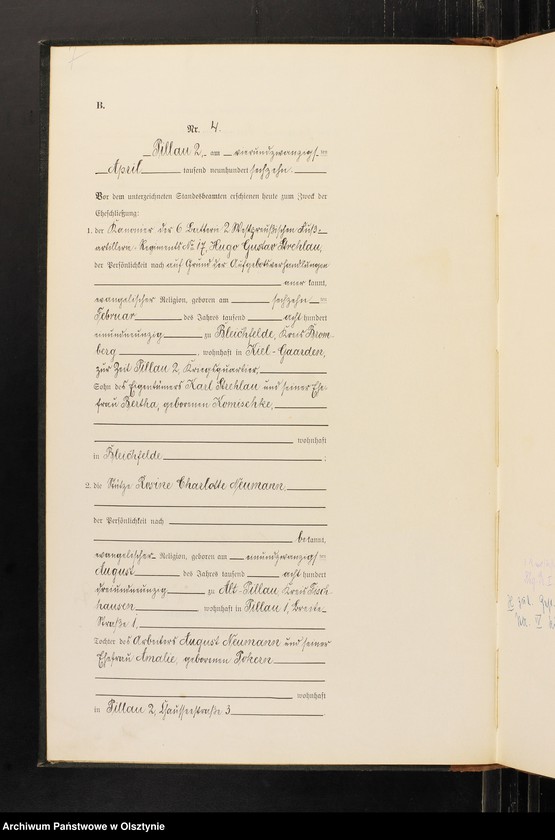 B.
Nr. 4.
Pillau 2, am vierundzwanzigsten
April tausend neunhundert sechzehn.
Vor dem unterzeichneten Standesbeamten erschienen heute zum Zweck der
Eheschließung:
1. der Kanonier der 6 Batterie 2 Westpreußischen Fuß-
artillerie-Regiments No 17, Hugo Gustav Strehlau,
der Persönlichkeit nach auf Grund der Aufgebotsverhandlungen
anerkannt,
evangelischer Religion, geboren am sechzehnten
Februar des Jahres tausend achthundert
neunundneunzig zu Bleichfelde, Kreis Brom-
berg, wohnhaft in Kiel-Gaarden,
zur Zeit Pillau 2, Kriegsquartier,
Sohn des Eigentümers Karl Strehlau und seiner Ehe-
frau Bertha, geborenen Komischke,
wohnhaft
in Bleichfelde;
2. die Stütze Rosine Charlotte Neumann,
der Persönlichkeit nach
bekannt,
evangelischer Religion, geboren am neunundzwanzigsten
August des Jahres tausend achthundert
dreiundneunzig zu Alt-Pillau, Kreis Fisch-
hausen, wohnhaft in Pillau 1, Breite-
straße 1,
Tochter des Arbeiters August Neumann und seiner
Ehefrau Amalie, geborenen Tohern
wohnhaft
in Pillau 2, Chausseestraße 3
Archiwum Państwowe w Olsztynie